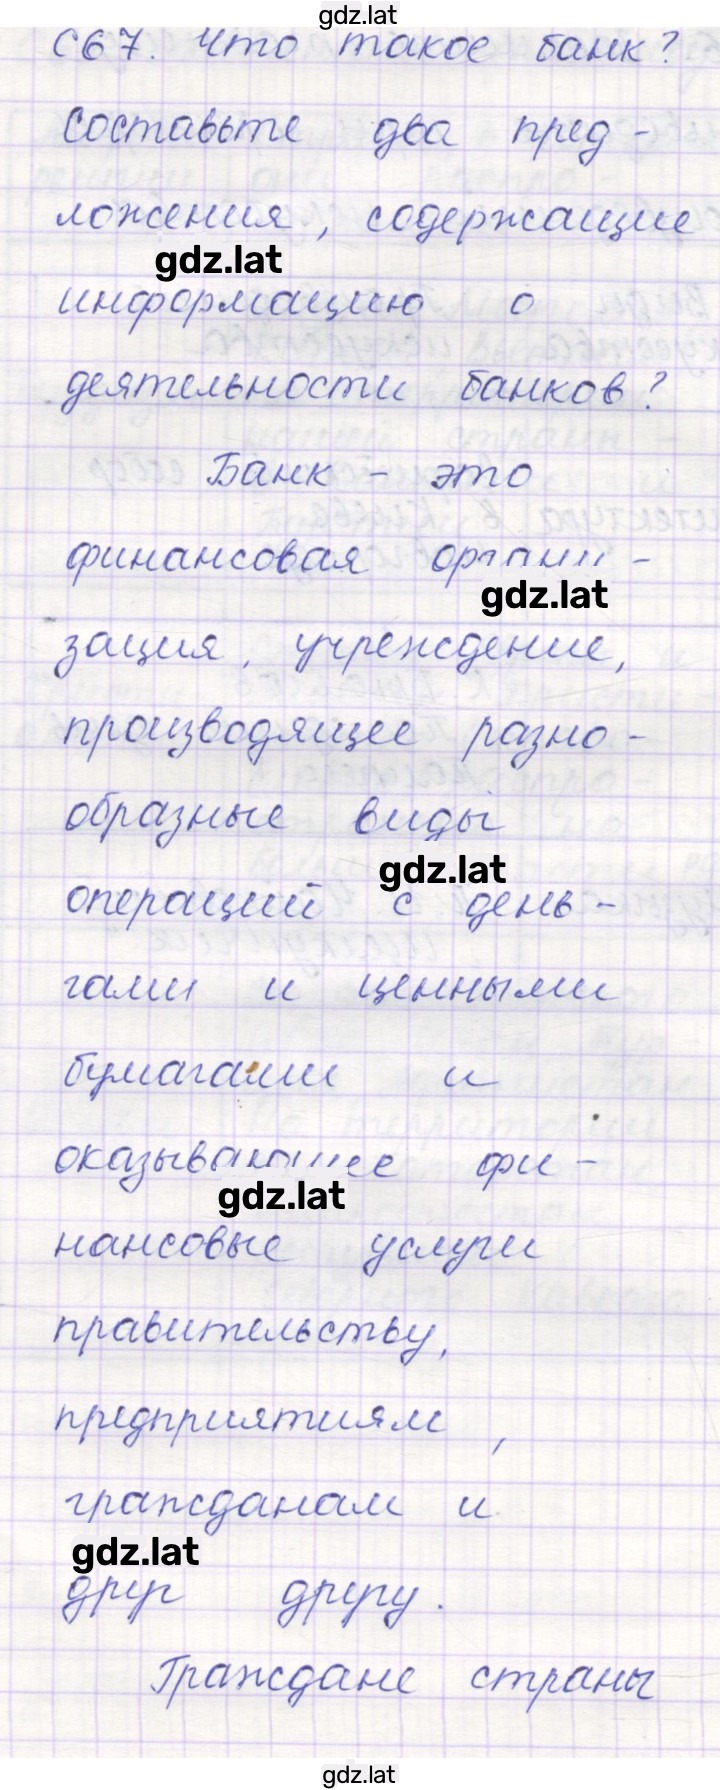 gdz.lat
С67. Что такое банк?
Составьте два пред-
ложения, содержащие
gdz.lat
информацию о
деятельности банков?
Банк - это
финансовая органи-
gdz.lat
зация, учреждение,
производящее разно-
образные виды
gdz.lat
операций с день-
гами и ценными
бумагами и
оказывающее фи-
gdz.lat
нансовые услуги
правительству,
предприятиям,
гражданам и
gdz.lat
друг другу.
Граждане страны
gdz.lat